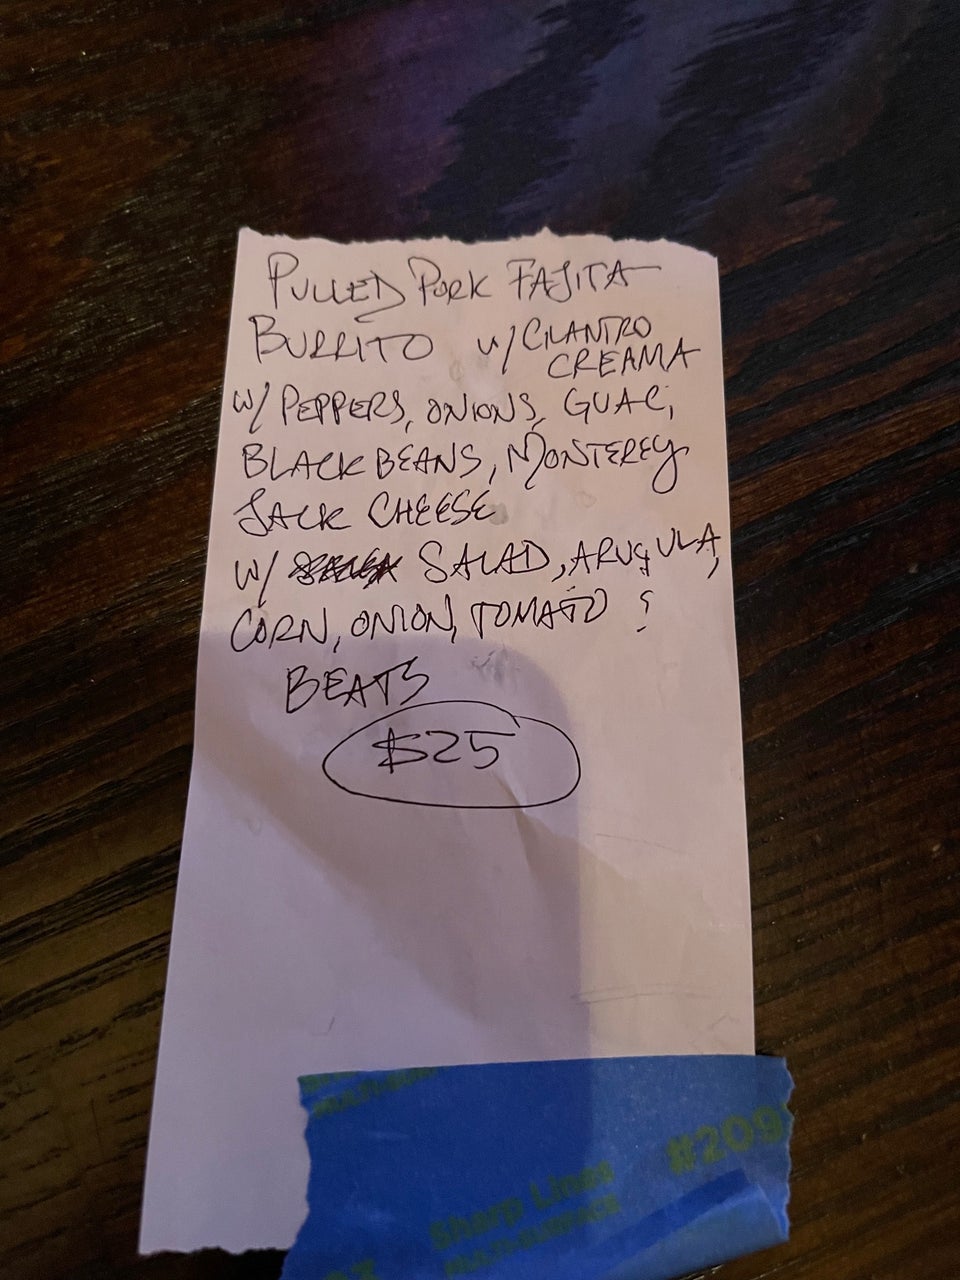 PULLED PORK FAJITA
BURRITO w/ CILANTRO
CREAMA
W/ PEPPERS, ONIONS, GUAC,
BLACK BEANS, MONTEREY
JACK CHEESE
W/ SALAD, ARUGULA,
CORN, ONION, TOMATO &
BEATS
$25
#209
Sharp Lines
MULTI-SURFACE